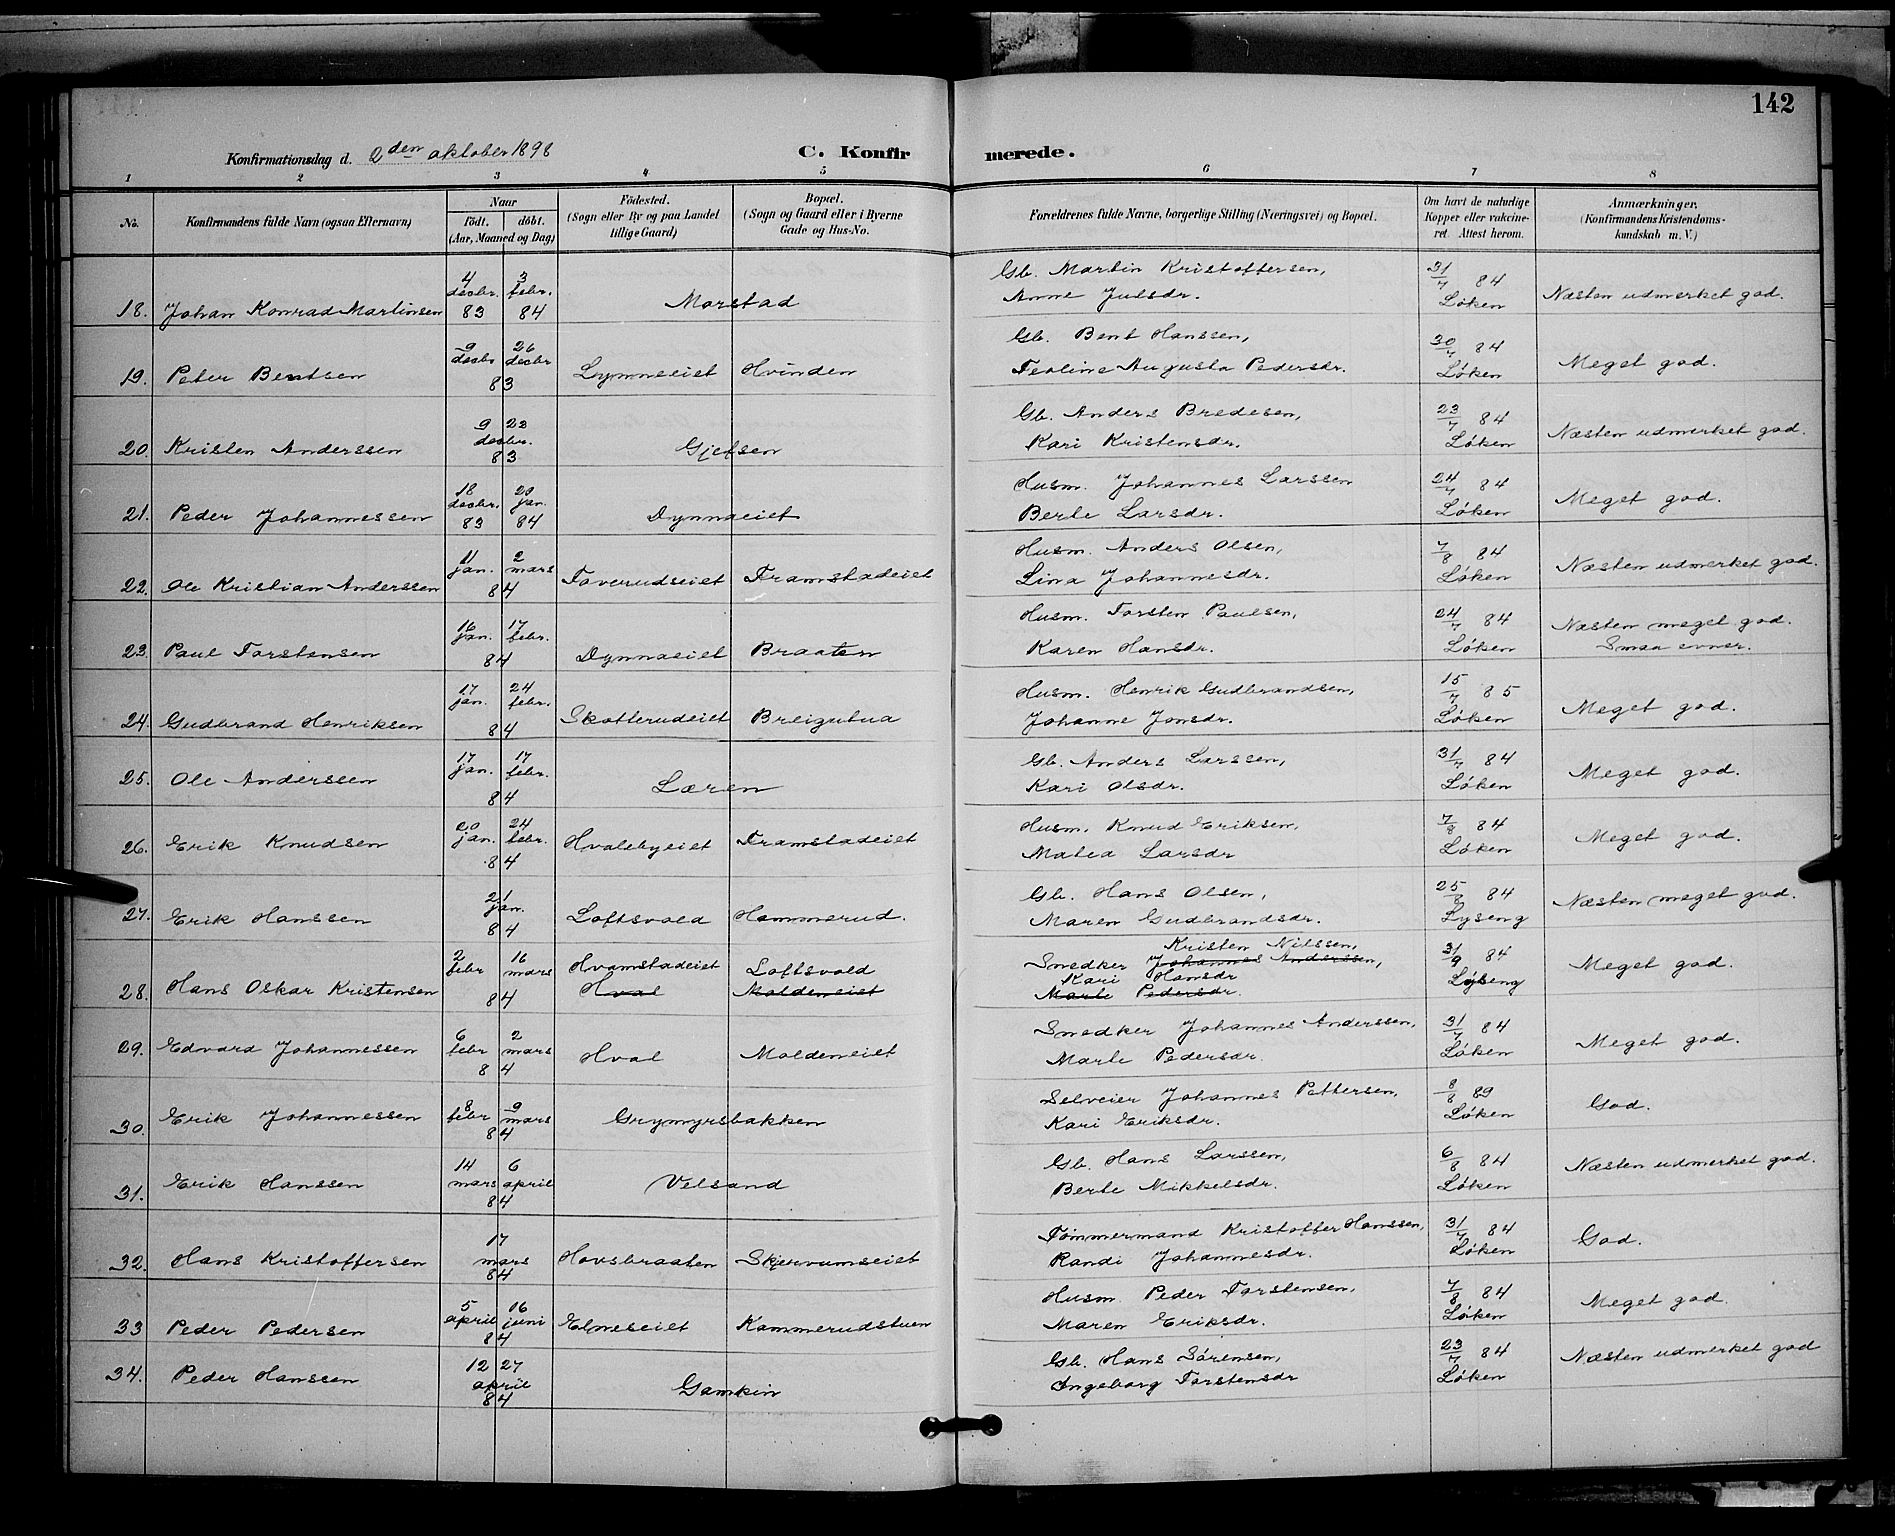 142
Konfirmationsdag d. 2den oktober 1898 C. Konfir merede.
1 2 3 4 5 6 7 8
No. Konfirmandens fulde Navn (ogsaa Efternavn) Naar Födt. döbt. (Aar, Maaned og Dag) Födested. (Sogn eller By og paa Landet tillige Gaard) Bopæl. (Sogn og Gaard eller i Byerne Gade og Hus-No. Forældrenes fulde Navne, borgerlige Stilling (Næringsvei) og Bopæl. Om havt de naturlige Kopper eller vakcineret. Attest herom. Anmærkninger. (Konfirmandens Kristendomskundskab m. V.)
18. Johan Konrad Martinsen 4 decbr. 83 3 febr. 84 Morstad Gb. Martin Kristoffersen, Anne Julsdr. 31/7 84 Løken Næsten udmerket god.
19. Peter Bentsen 9 decbr 26 decbr 83 Lynneeiet Hvinden Gb. Bent Hanssen, Teoline Augusta Pedersdr. 30/7 84 Løken Meget god.
20. Kristen Anderssen 9 23 decbr. 83 Gjefsen Gb. Anders Bredesen, Kari Kristensdr. 23/7 84 Løken Næsten udmerket god.
21. Peder Johannessen 18 decbr. 83 20 jan. 84 Dynnaeiet Husm. Johannes Larssen Berte Larsdr. 24/7 84 Løken Meget god.
22. Ole Kristian Anderssen 11 jan. 2 mars 84 Toverudseiet Framstadeiet Husm. Anders Olsen, Lina Johannesdr. 7/8 84 Løken Næsten udmerket god.
23. Paul Torstensen 16 jan. 17 febr. 84 Dynnaeiet Braaten Husm. Torsten Paulsen, Karen Hansdr. 24/7 84 Løken Næsten meget god. Smaa evner.
24. Gudbrand Henriksen 17 jan. 24 febr. 84 Skotterudeiet Breigutua Husm. Henrik Gudbrandsen, Johanne Jonsdr. 15/7 85 Løken Meget god.
25. Ole Anderssen 17 jan. 17 febr. 84 Læren Gb. Anders Larssen, Kari Olsdr. 31/7 84 Løken Meget god.
26. Erik Knudsen 20 jan. 24 febr. 84 Hvalebyeiet Framstadeiet Husm. Knud Eriksen, Matea Larsdr 7/8 84 Løken Meget god.
27. Erik Hanssen 21 jan. 84 Loftsvold Hammerud. Gb. Hans Olsen, Maren Gudbrandsdr. 25/8 84 Lyseng Næsten meget god.
28. Hans Oskar Kristensen 2 febr 16 mars 84 Hvamstadeiet Hval Loftsvold Moldeneiet Snedker Kristen Nilssen, Johannes Anderssen, Kari Hansdr Marte Pedersdr. 31/9 84 Lyseng Meget god.
29. Edvard Johannessen 6 febr 2 mars 84 Hval Moldeneiet Snedker Johannes Anderssen, Marte Pedersdr. 31/7 84 Løken Meget god.
30. Erik Johannessen 8 febr 9 mars 84 Grymyrsbakken Selveier Johannes Pettersen, Kari Eriksdr. 8/8 89 Løken God.
31. Erik Hanssen 14 mars 6 april 84 Velsand Gb. Hans Larssen, Berte Mikkelsdr. 6/8 84 Løken Næsten udmerket god.
32. Hans Kristoffersen 17 mars 84 Hovsbraaten Skjervumseiet Tømmermand Kristoffer Hanssen, Randi Johannesdr. 31/7 84 Løken God.
33 Peder Pedersen 5 april 16 juni 84 Elneseiet Kammerudstuen Husm. Peder Torstensen, Maren Eriksdr. 7/8 84 Løken Meget god.
34. Peder Hanssen 12 27 april 84 Gamkin Gb. Hans Sørensen, Ingeborg Torstensdr 23/7 84 Løken Næsten udmerket god